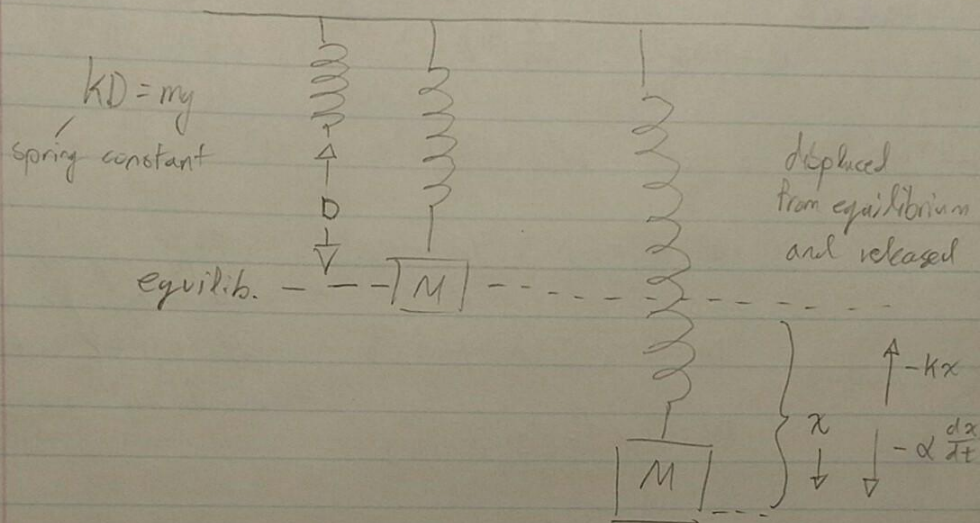 KD = mg
spring constant
D
equilib.
M
M
displaced
from equilibrium
and released
x
-kx
-α dx/dt